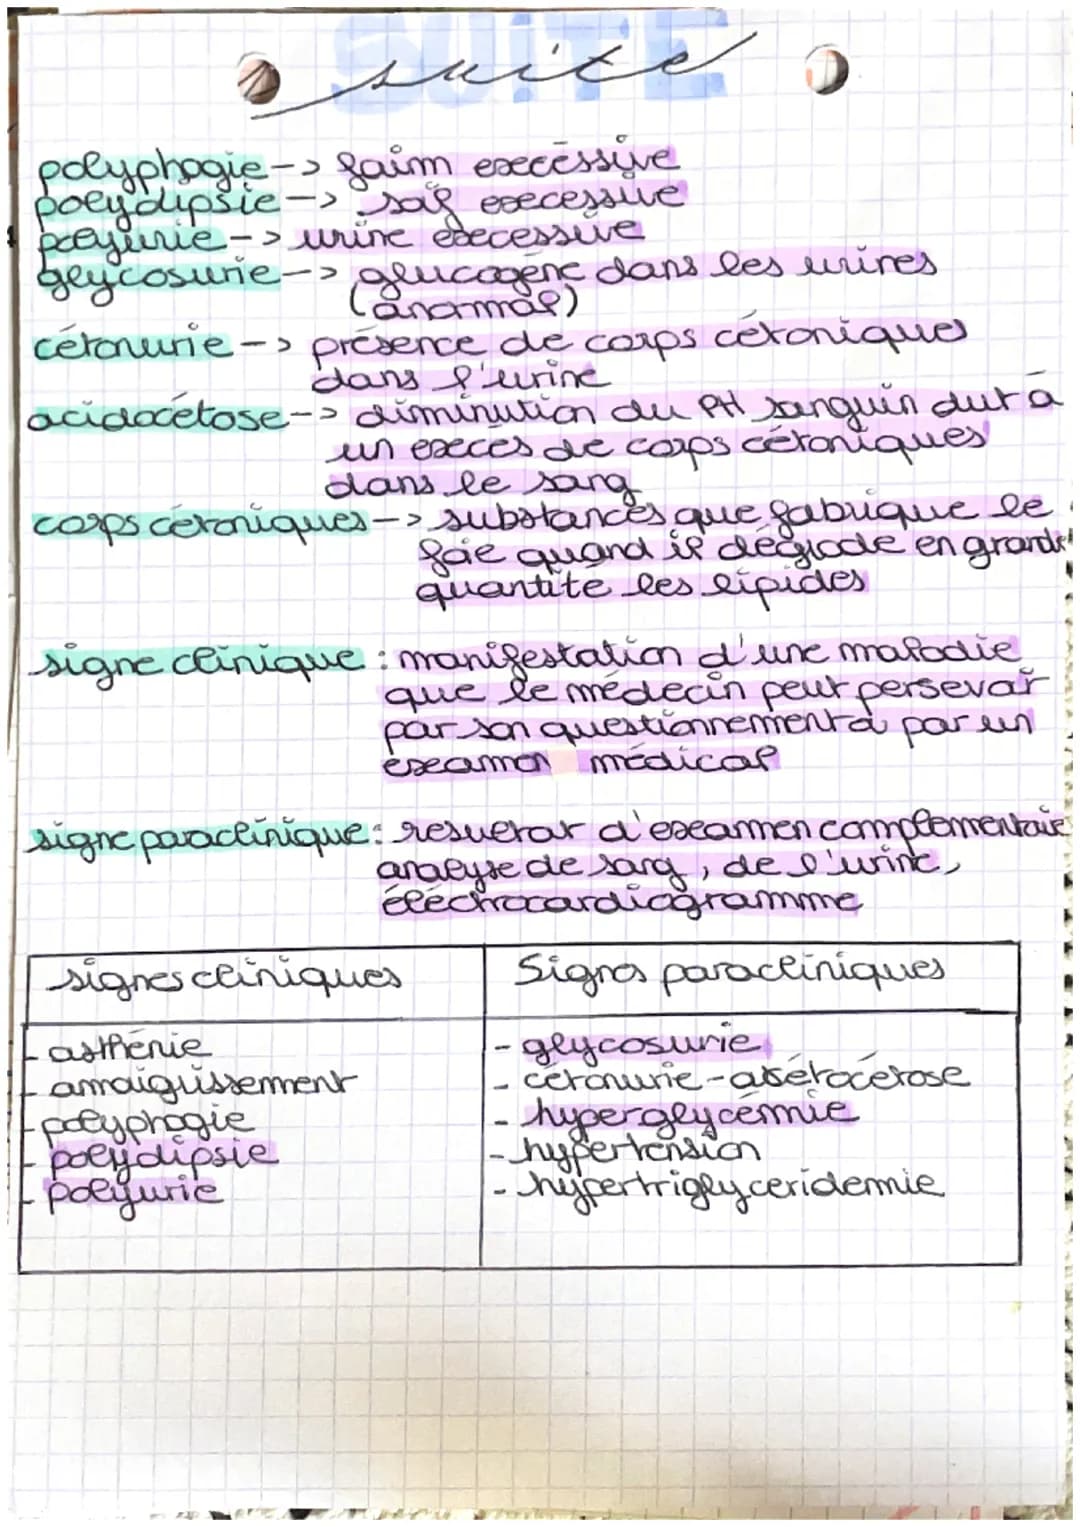 SUITE
suite
polyphagie -> faim excéssive
polydipsie -> soif execessive
polyurie -> urine execessive
glycosurie -> glucogène dans les urines
(anormal)
cétonurie -> présence de corps cétoniques
dans l'urine
acidocétose -> diminution du PH sanguin dut à
un execès de corps cétoniques
dans le sang
corps cétoniques -> substances que fabrique le
foie quand il dégrade en grande
quantité les lipides
signe clinique : manifestation d'une maladie
que le médecin peut persevoir
par son questionnement à par un
exeamen médical
signe paraclinique : resultat d'exeamen complementaire
analyse de sang, de l'urine,
éléctrocardiogramme
signes cliniques
Signes paracliniques
- asthénie
- amaigrissement
- polyphagie
- polydipsie
- polyurie
- glycosurie
- cétonurie - asétocétose
- hyperglycémie
- hypertension
- hypertriglyceridemie